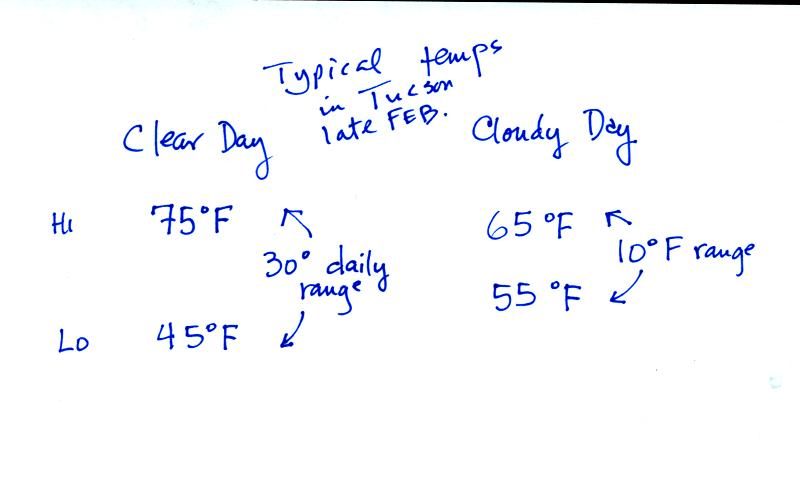 Typical temps
in Tucson
late FEB.
Clear Day
Cloudy Day
Hi 75°F
65°F
30° daily
range
10°F range
55°F
Lo 45°F